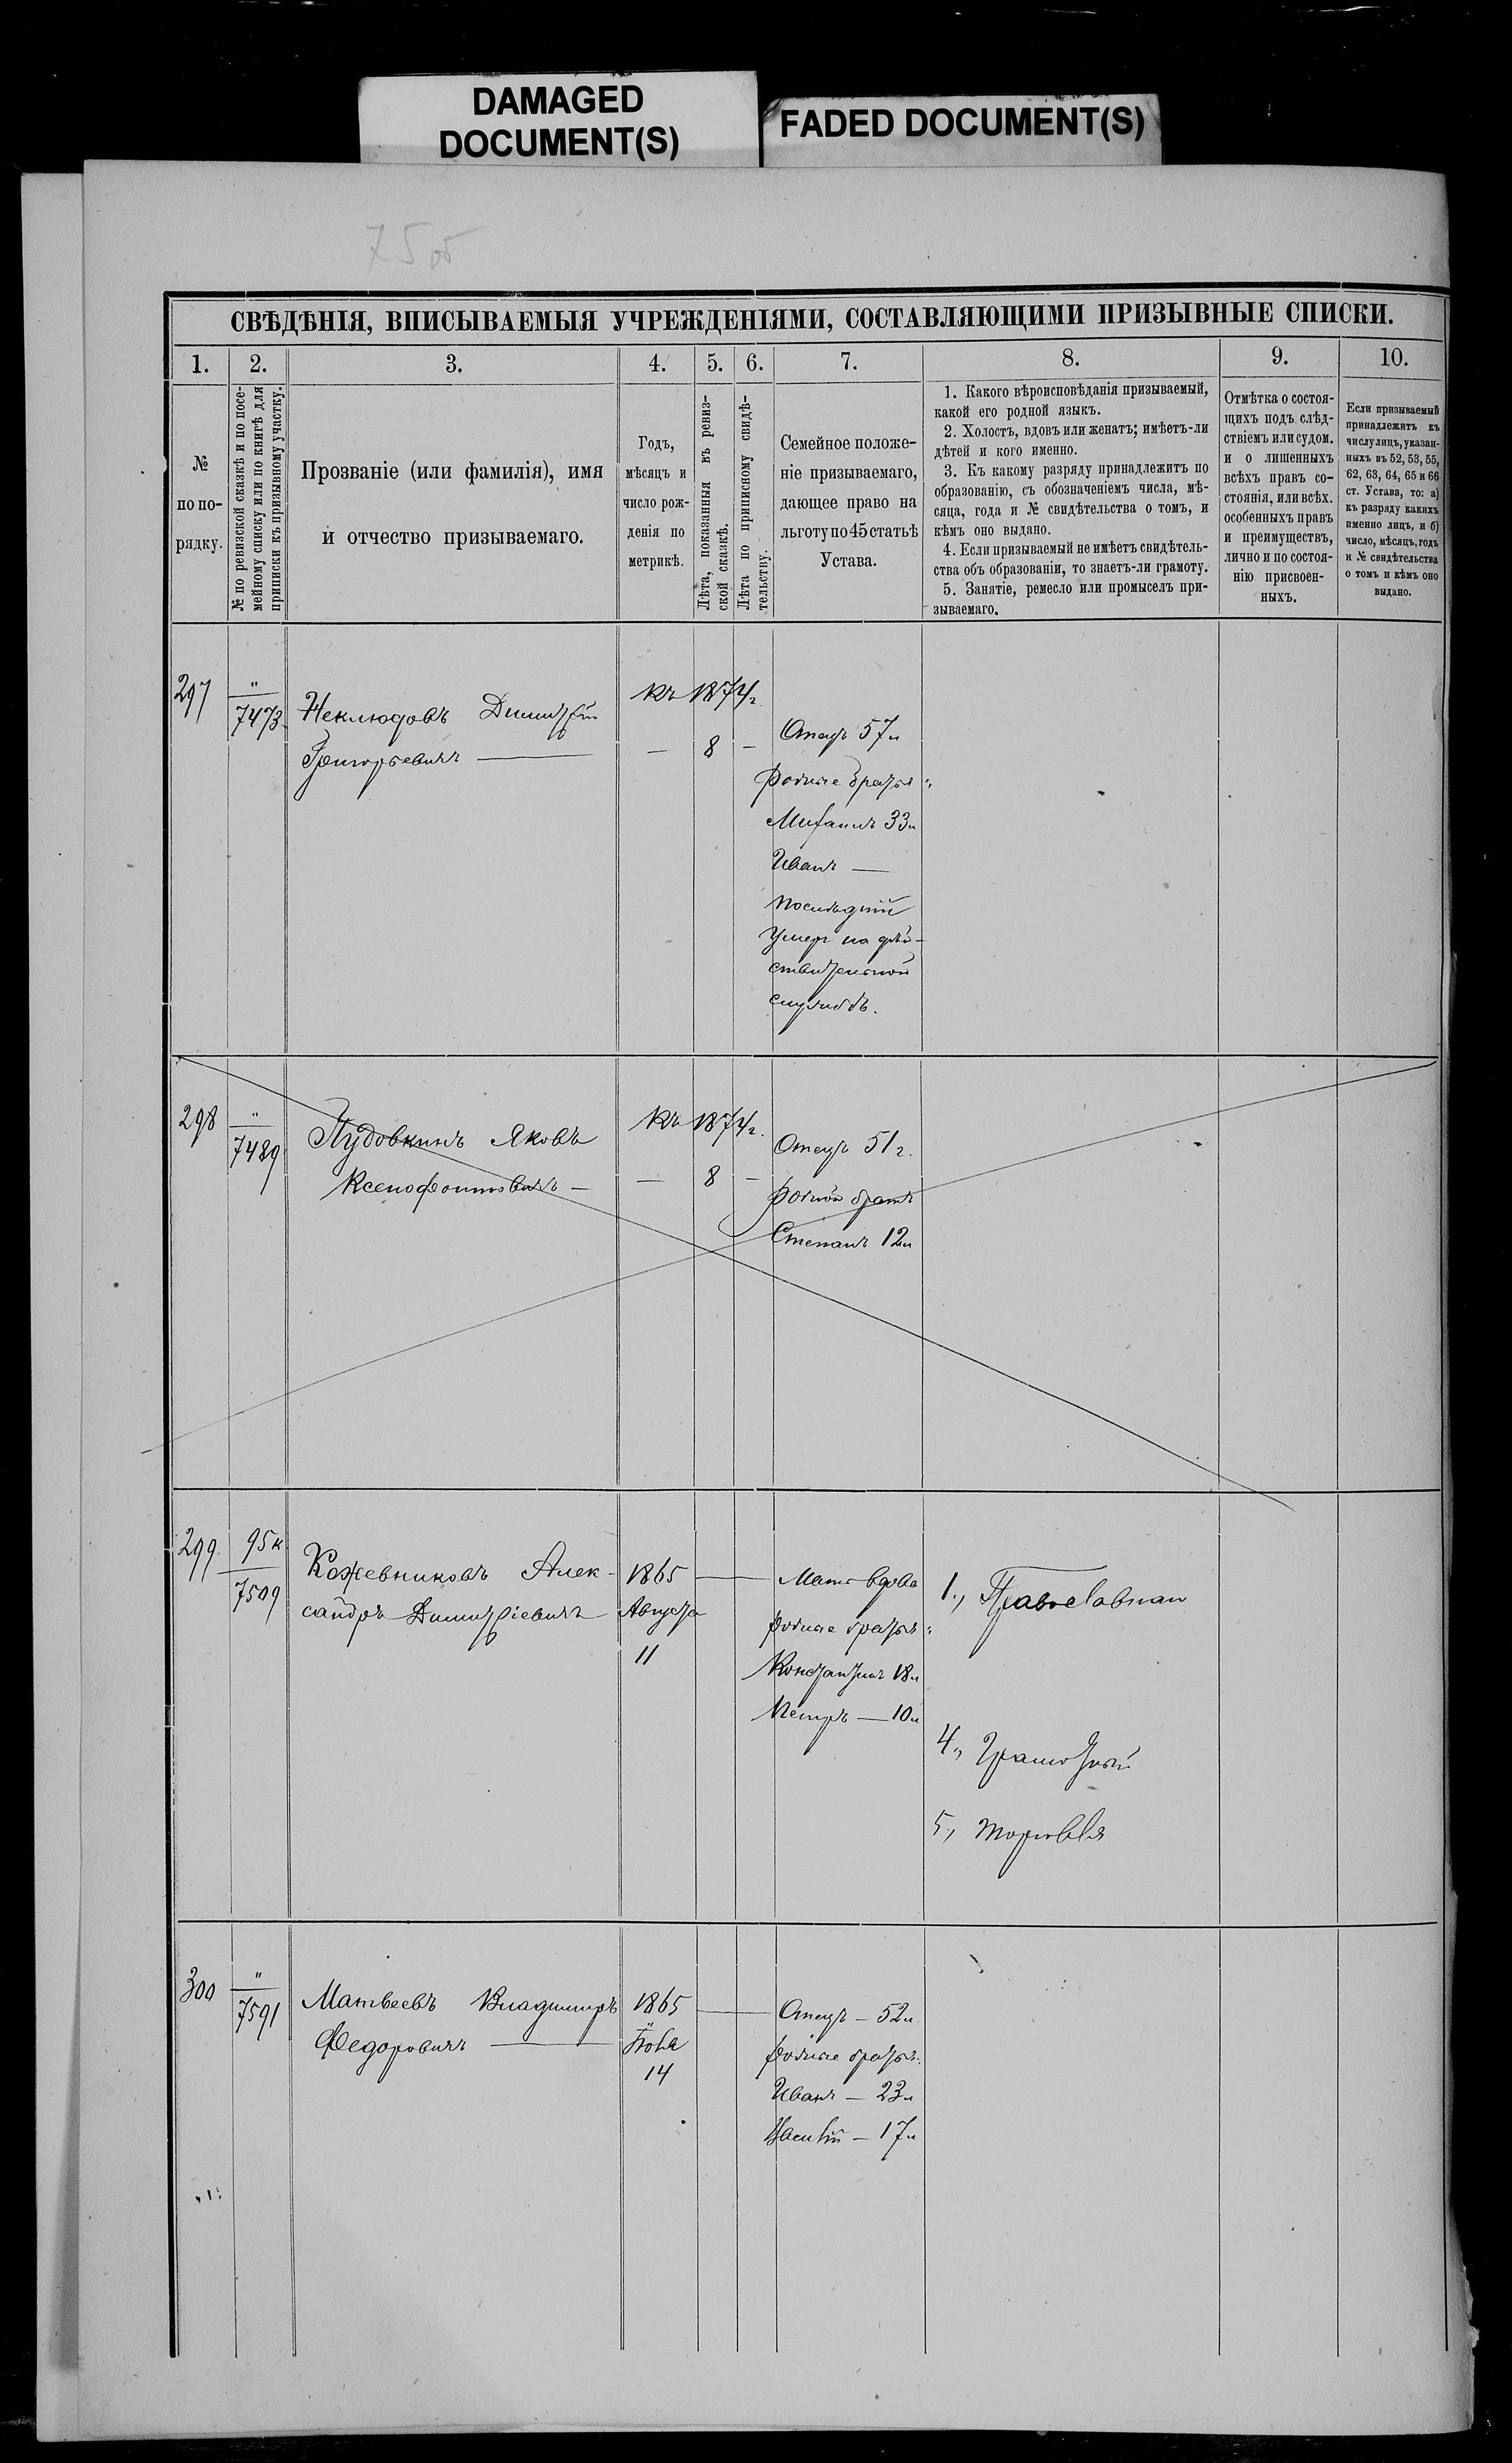 DAMAGED
DOCUMENT(S)
FADED DOCUMENT(S)
75об
СВѢДѢНІЯ, ВПИСЫВАЕМЫЯ УЧРЕЖДЕНІЯМИ, СОСТАВЛЯЮЩИМИ ПРИЗЫВНЫЕ СПИСКИ.
1.
2.
3.
4.
5.
6.
7.
8.
9.
10.
№
по по-
рядку.
№ по ревизской сказкѣ и по посе-
мейному списку или по книгѣ для
приписки къ призывному участку.
Прозваніе (или фамилія), имя
и отчество призываемаго.
Годъ,
мѣсяцъ и
число рож-
денія по
метрикѣ.
Лѣта, показанныя въ ревиз-
ской сказкѣ.
Лѣта по приписному свидѣ-
тельству.
Семейное положе-
ніе призываемаго,
дающее право на
льготу по 45 статьѣ
Устава.
1. Какого вѣроисповѣданія призываемый,
какой его родной языкъ.
2. Холостъ, вдовъ или женатъ; имѣетъ-ли
дѣтей и кого именно.
3. Къ какому разряду принадлежитъ по
образованію, съ обозначеніемъ числа, мѣ-
сяца, года и № свидѣтельства о томъ, и
кѣмъ оно выдано.
4. Если призываемый не имѣетъ свидѣтель-
ства объ образованіи, то знаетъ-ли грамоту.
5. Занятіе, ремесло или промыселъ при-
зываемаго.
Отмѣтка о состоя-
щихъ подъ слѣд-
ствіемъ или судом.
и о лишенныхъ
всѣхъ правъ со-
стоянія, или всѣх.
особенныхъ правъ
и преимуществъ,
лично и по состоя-
нію присвоен-
ныхъ.
Если призываемый
принадлежитъ къ
числу лицъ, указан-
ныхъ въ 52, 53, 55,
62, 63, 64, 65 и 66
ст. Устава, то: а)
къ разряду какихъ
именно лицъ, и б)
число, мѣсяцъ, годъ
и № свидѣтельства
о томъ и кѣмъ оно
выдано.
297
"
7473
Неклюдовъ Димитрій
Григорьевичъ —
Къ 1874 г.
— 8 —
Отецъ 57 л
родные братья:
Михаилъ 33 л
Иванъ —
послѣдній
умеръ на дѣй-
ствительной
службѣ.
298
"
7489
Пудовкинъ Яковъ
Ксенофонтовичъ —
Къ 1874 г.
— 8 —
Отецъ 51 г.
родной братъ
Степанъ 12 л
299
95к
7509
Кожевниковъ Алек-
сандръ Димитріевичъ
1865
Августа
11
Мать вдова
родные братья:
Константинъ 18 л
Петръ — 10 л
1., Православнаго
4., Грамотный
5., торговля
300
"
7591
Матвеевъ Владимиръ
Федоровичъ —
1865
Іюля
14
Отецъ — 52 л
родные братья:
Иванъ — 23 л
Василій — 17 л